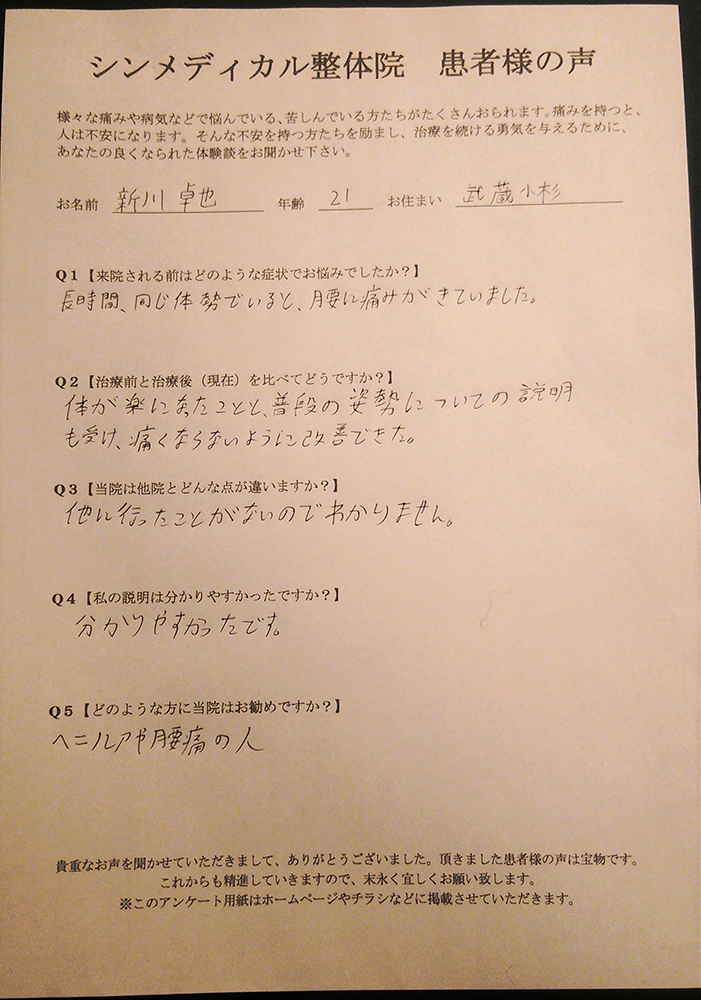 シンメディカル整体院　患者様の声
様々な痛みや病気などで悩んでいる、苦しんでいる方たちがたくさんおられます。痛みを持つと、
人は不安になります。そんな不安を持つ方たちを励まし、治療を続ける勇気を与えるために、
あなたの良くなられた体験談をお聞かせ下さい。
お名前　新川 卓也　年齢　21　お住まい　武蔵小杉
Q1【来院される前はどのような症状でお悩みでしたか？】
長時間、同じ体勢でいると、腰に痛みがきていました。
Q2【治療前と治療後（現在）を比べてどうですか？】
体が楽になったことと、普段の姿勢についての説明
も受け、痛くならないように改善できた。
Q3【当院は他院とどんな点が違いますか？】
他に行ったことがないのでわかりません。
Q4【私の説明は分かりやすかったですか？】
分かりやすかったです。
Q5【どのような方に当院はお勧めですか？】
ヘニルアや腰痛の人
貴重なお声を聞かせていただきまして、ありがとうございました。頂きました患者様の声は宝物です。
これからも精進していきますので、末永く宜しくお願い致します。
※このアンケート用紙はホームページやチラシなどに掲載させていただきます。